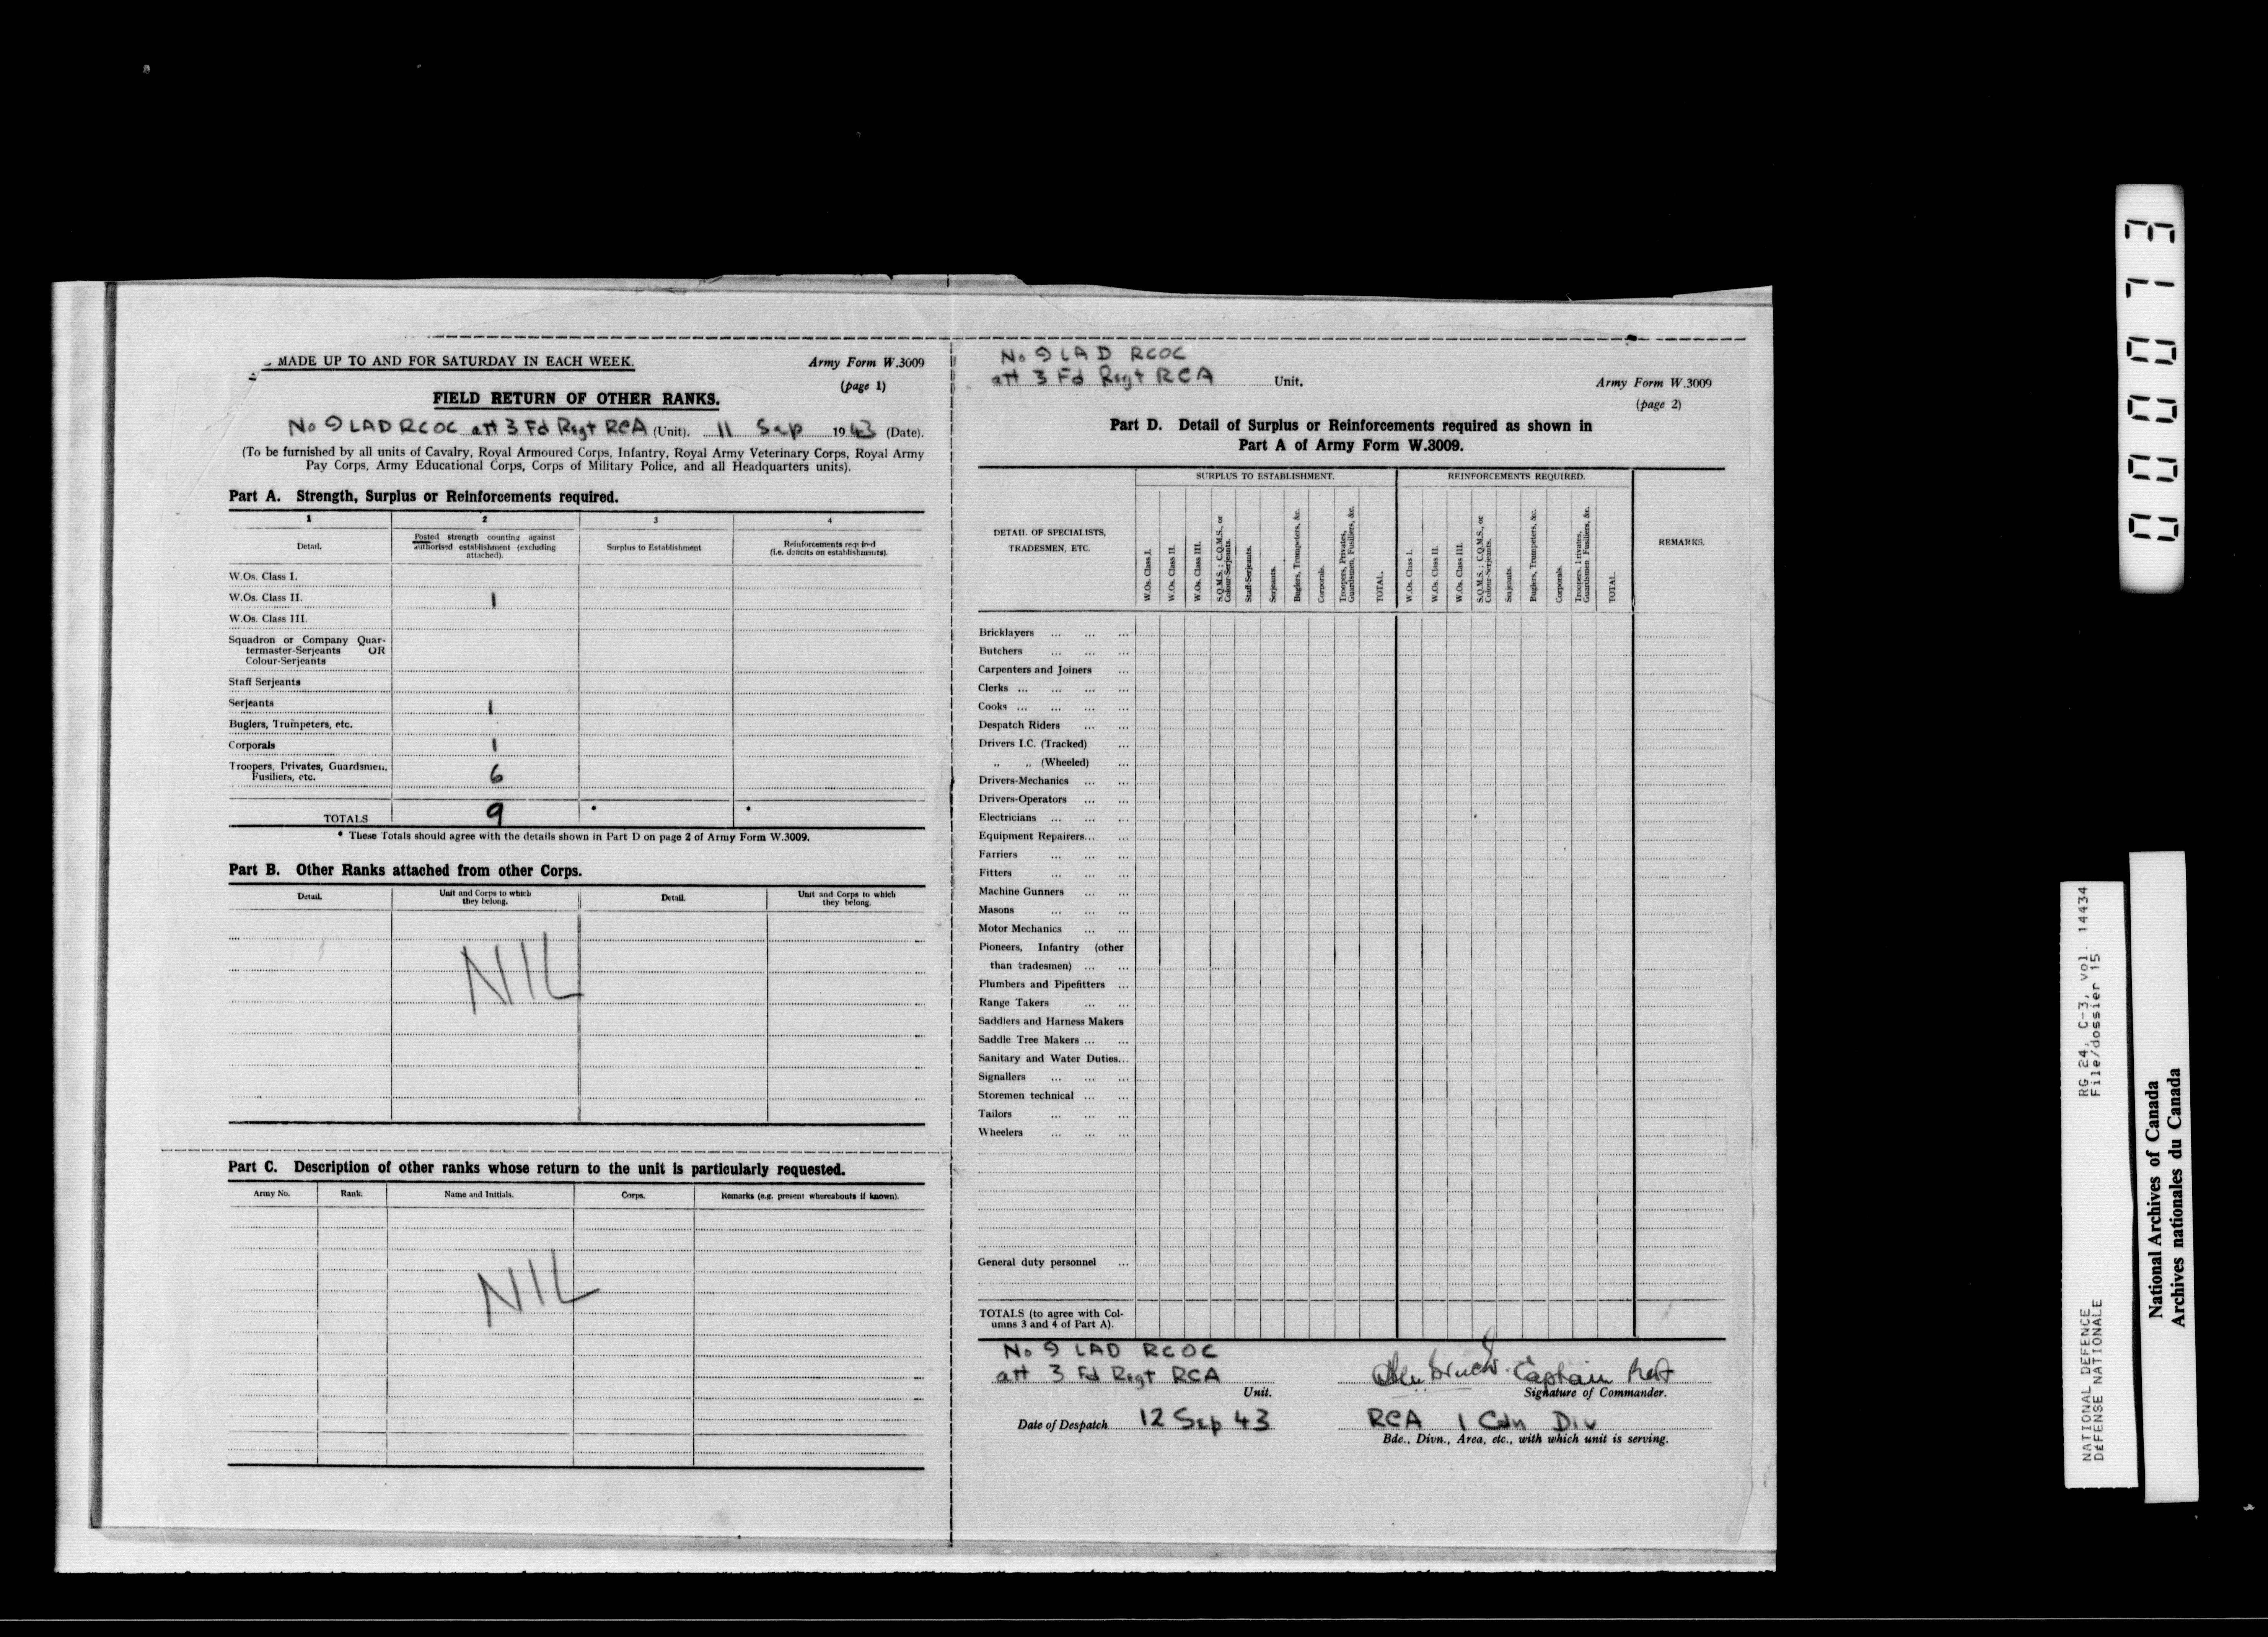 MADE UP TO AND FOR SATURDAY IN EACH WEEK.
Army Form W.3009
(page 1)
FIELD RETURN OF OTHER RANKS.
No 9 LAD RCOC att 3 Fd Regt RCA (Unit). 11 Sep 1943 (Date).
(To be furnished by all units of Cavalry, Royal Armoured Corps, Infantry, Royal Army Veterinary Corps, Royal Army
Pay Corps, Army Educational Corps, Corps of Military Police, and all Headquarters units).
Part A. Strength, Surplus or Reinforcements required.
1 2 3 4
Detail.
Posted strength counting against
authorised establishment (excluding
attached).
Surplus to Establishment
Reinforcements required
(i.e. deficits on establishments).
W.Os. Class I.
W.Os. Class II. 1
W.Os. Class III.
Squadron or Company Quar-
termaster-Serjeants OR
Colour-Serjeants
Staff Serjeants
Serjeants 1
Buglers, Trumpeters, etc.
Corporals 1
Troopers, Privates, Guardsmen,
Fusiliers, etc. 6
TOTALS 9 * *
* These Totals should agree with the details shown in Part D on page 2 of Army Form W.3009.
Part B. Other Ranks attached from other Corps.
Detail.
Unit and Corps to which
they belong.
Detail.
Unit and Corps to which
they belong.
NIL
Part C. Description of other ranks whose return to the unit is particularly requested.
Army No. Rank. Name and Initials. Corps. Remarks (e.g. present whereabouts if known).
NIL
No 9 LAD RCOC
att 3 Fd Regt RCA Unit.
Army Form W.3009
(page 2)
Part D. Detail of Surplus or Reinforcements required as shown in
Part A of Army Form W.3009.
DETAIL OF SPECIALISTS,
TRADESMEN, ETC.
SURPLUS TO ESTABLISHMENT.
W.Os. Class I.
W.Os. Class II.
W.Os. Class III.
S.Q.M.S.; C.Q.M.S., or
Colour-Serjeants.
Staff-Serjeants.
Serjeants.
Buglers, Trumpeters, &c.
Corporals.
Troopers, Privates,
Guardsmen, Fusiliers, &c.
TOTAL.
REINFORCEMENTS REQUIRED.
W.Os. Class I.
W.Os. Class II.
W.Os. Class III.
S.Q.M.S.; C.Q.M.S., or
Colour-Serjeants.
Serjeants.
Buglers, Trumpeters, &c.
Corporals.
Troopers, Privates,
Guardsmen, Fusiliers, &c.
TOTAL.
REMARKS.
Bricklayers ... ... ...
Butchers ... ... ...
Carpenters and Joiners ...
Clerks ... ... ... ...
Cooks ... ... ... ...
Despatch Riders ... ...
Drivers I.C. (Tracked) ...
„ „ (Wheeled) ...
Drivers-Mechanics ... ...
Drivers-Operators ... ...
Electricians ... ... ...
Equipment Repairers... ...
Farriers ... ... ...
Fitters ... ... ...
Machine Gunners ... ...
Masons ... ... ...
Motor Mechanics ... ...
Pioneers, Infantry (other
than tradesmen) ... ...
Plumbers and Pipefitters ...
Range Takers ... ...
Saddlers and Harness Makers
Saddle Tree Makers ... ...
Sanitary and Water Duties...
Signallers ... ... ...
Storemen technical ... ...
Tailors ... ... ...
Wheelers ... ... ...
General duty personnel ...
TOTALS (to agree with Col-
umns 3 and 4 of Part A).
No 9 LAD RCOC
att 3 Fd Regt RCA
Unit.
Captain
Signature of Commander.
Date of Despatch 12 Sep 43
RCA 1 Cdn Div
Bde., Divn., Area, etc., with which unit is serving.
NATIONAL DEFENCE RG 24, C-3, vol. 14434
DÉFENSE NATIONALE File/dossier 15
National Archives of Canada
Archives nationales du Canada